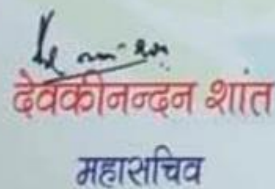 देवकीनन्दन शांत
महासचिव